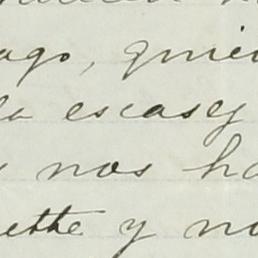 ago, quie
la escasez
nos ha
ette y no